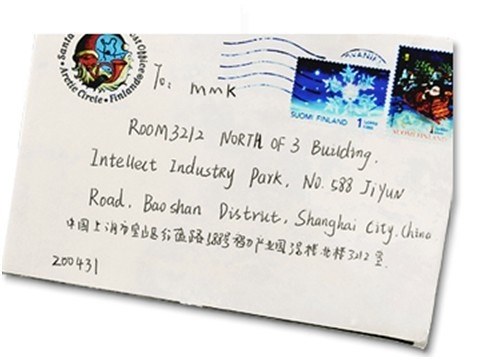 Santa
Post Office
Arctic Circle • Finland
To: MMK
SUOMI FINLAND 1
SUOMI FINLAND
ROOM3212 NORTH OF 3 Building.
Intellect Industry Park, NO.588 JiYun
Road, Baoshan District, Shanghai City. China
中国上海市宝山区 路588号 力产业园3号楼北楼3212室.
200431